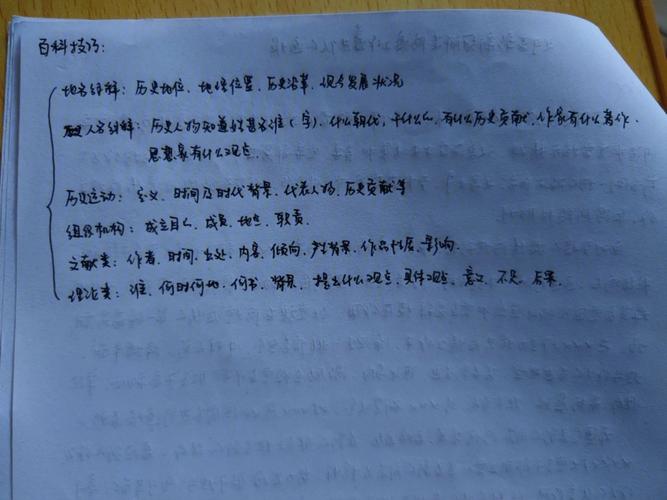 百科技巧：
地名解释：历史地位、地理位置、历史沿革、现今发展状况
人名解释：历史人物知道姓甚名谁（字）、什么朝代，干什么，有什么历史贡献，作家有什么著作，
思想家有什么观点
历史运动：定义、时间及时代背景、代表人物、历史贡献等
组织机构：成立目的、成员、地点、职责。
文献类：作者、时间、出处、内容、倾向、背景、作品性质、影响。
理论类：谁、何时何地、何书、背景、提出什么观点、具体观点、意义、不足、后果。